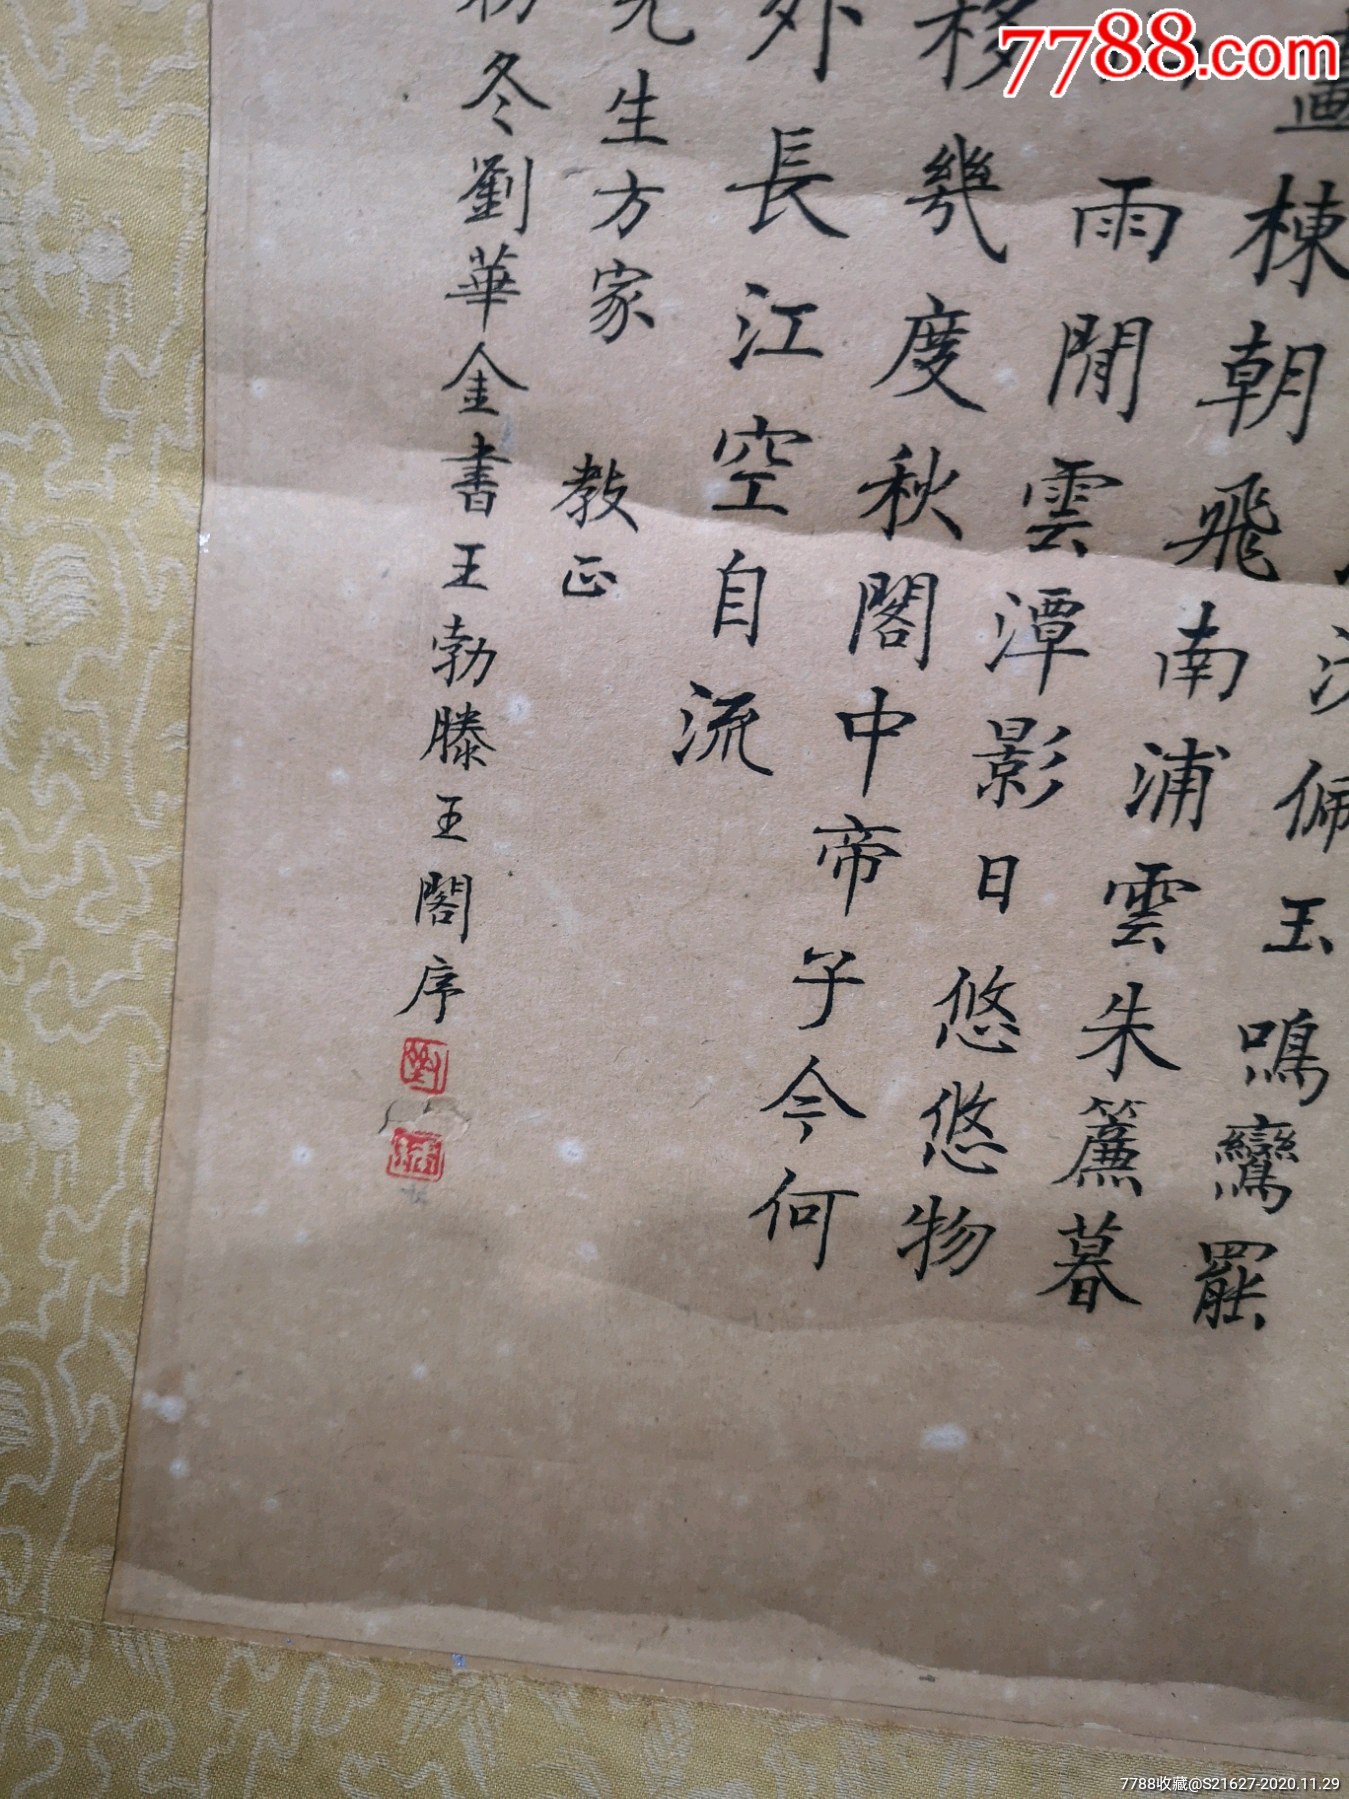 佩玉鳴鸞罷
畫棟朝飛南浦雲朱簾暮
雨閒雲潭影日悠悠物
移幾度秋閣中帝子今何
外長江空自流
先生方家 教正
初冬劉華金書王勃滕王閣序
7788.com
7788收藏@S21627-2020.11.29